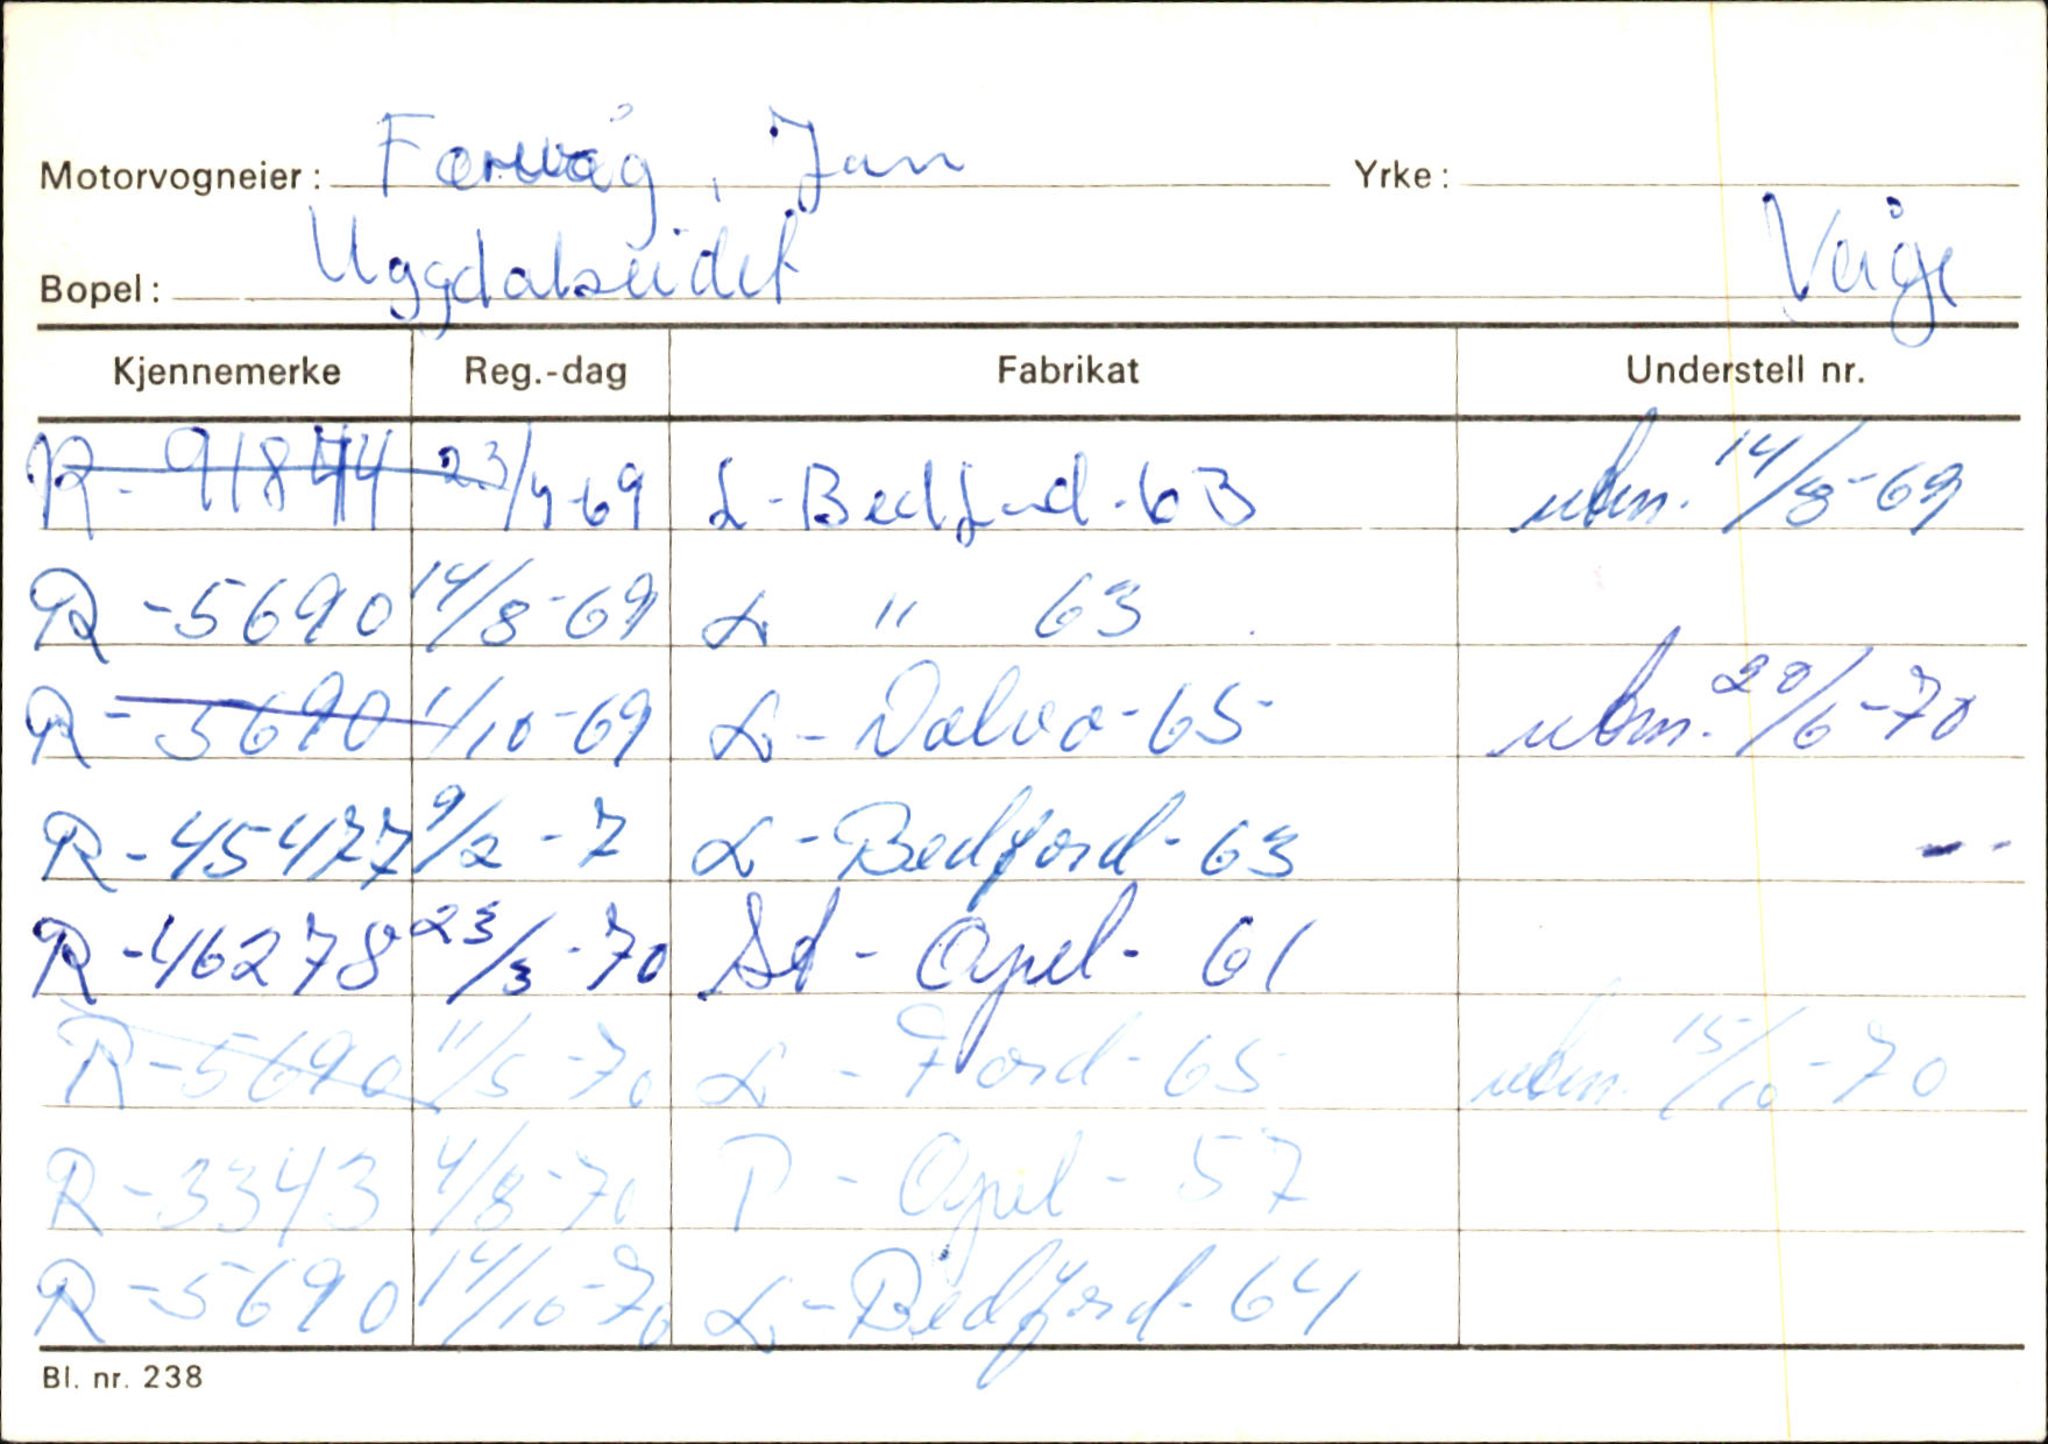 Motorvogneier: Færevåg, Jan Yrke:
Bopel: Uggdalseidet
Kjennemerke Reg.-dag Fabrikat Understell nr.
R- 91844 23/4-69 L-Bedford-63 14/8-69
R-5690 14/8-69 L " 63
R-5690 1/10-69 L-Volvo-65 20/6-70
R-45477 9/2-7 L-Bedford-63 --
R-46278 23/3-70 St-Opel-61
R-5690 11/5-70 L-Ford-65 15/10-70
R-3343 4/8-70 P-Opel-57
R-5690 14/10-70 L-Bedford-64
Bl. nr. 238